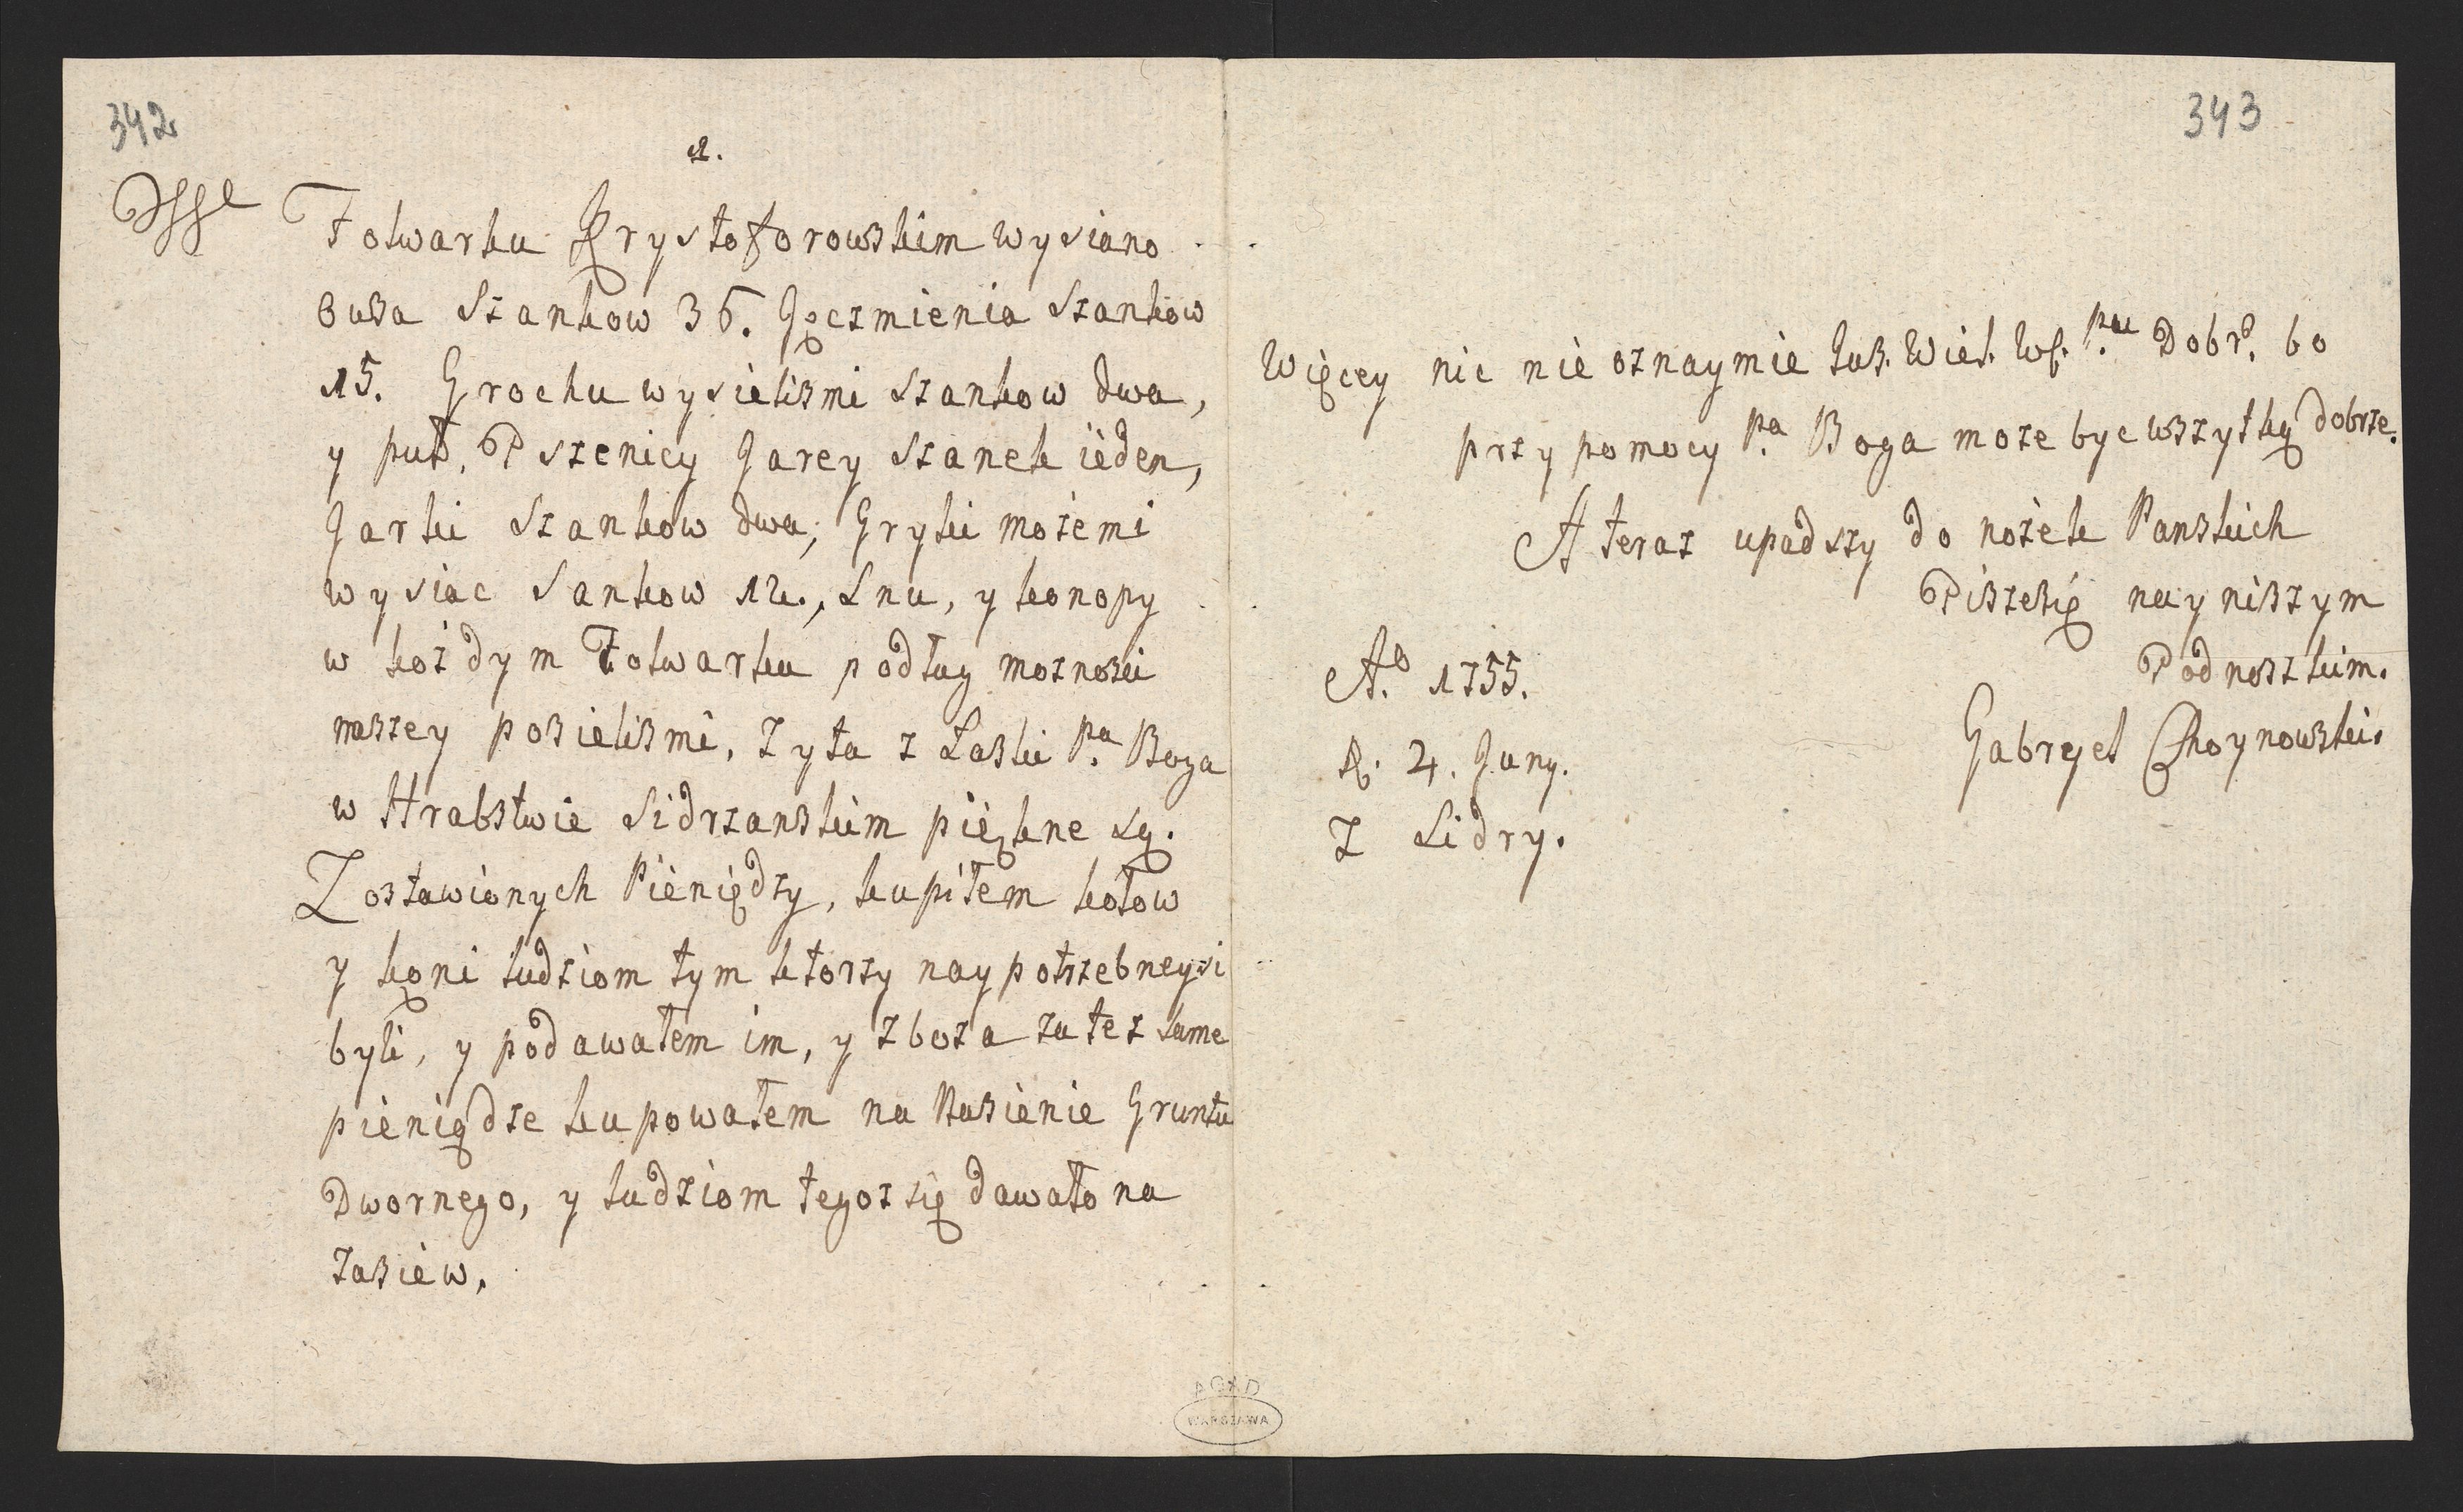 342
2.
Folwarku Krystoforowskim wysiano
owsa Szankow 36. Jęczmienia Szankow
15. Grochu wysielismi Szankow dwa,
y puł, Pszenicy Jarey Szanek ieden,
Jarki Szankow dwa, Gryki możemi
wysiac Sankow 12., Lnu, y konopy
w kożdym Folwarku podług moznosci
naszey posielismi, Zyta z Łaski Pa. Boga
w Hrabstwie Sidrzanskim piękne są.
Zostawionych Pieniędzy, kupiłem kołow
y koni ludziom tym ktorzy naypotrzebneysi
byli, y podawałem im, y zboza za tez same
pieniądze kupowałem na Nasienie Gruntu
Dwornego, y ludziom tegoz się dawało na
zasiew.
343
Więcey nic nie oznaymie Jas. Wiel. Ws. Pau Dobr. bo
przy pomocy Pa. Boga moze byc wszytką dobrze.
A teraz upadszy do nożek Panskich
Piszesię nayniszym
Podnoszkim.
Gabryel Choynowski.
Ao. 1755.
D. 4. Juny.
Z Sidry.
AGAD
WARSZAWA